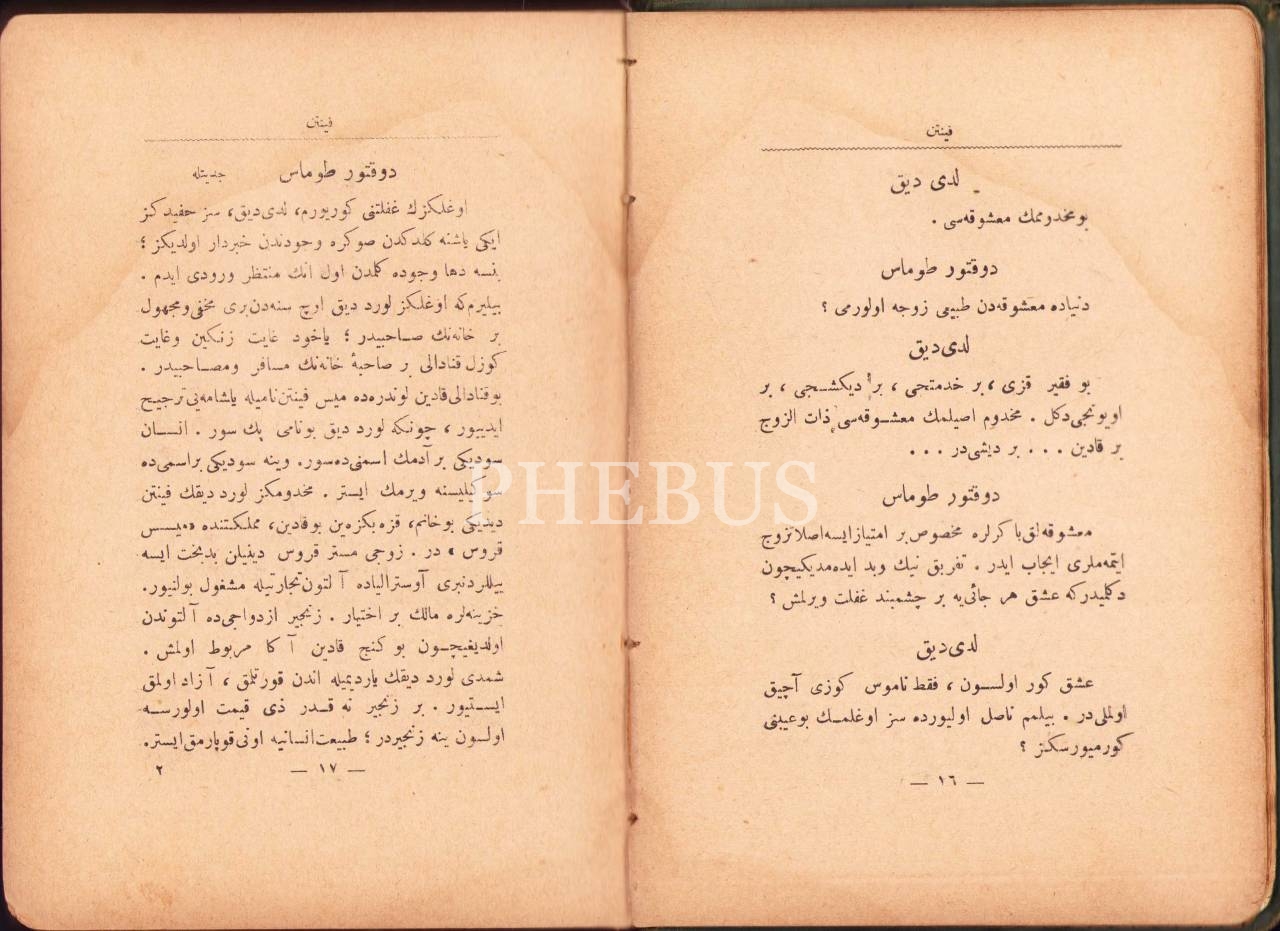 فينتن
لدی ديق
بو مخدوممك معشوقه‌سی .
دوقتور طوماس
دنياده معشوقه‌دن طبيعی زوجه اولورمی ؟
لدی ديق
بو فقير قزی ، بر خدمتجی ، بر ديكشجی ، بر
اويونجی دكل . مخدوم اصيلمك معشوقه‌سی ذات الزوج
بر قادين . . . بر ديشی در . . .
دوقتور طوماس
معشوقه‌لق باكرلره مخصوص بر امتياز ايسه اصلا تزوج
ايتمه‌ملری ايجاب ايدر . تفريق نيك وبد ايده‌مديكيچون
دكلميدركه عشق هر جائی‌يه بر چشمبند غفلت ويرلمش ؟
لدی ديق
عشق كور اولسون ، فقط ناموس كوزی آچيق
اولملی در . بيلمم ناصل اوليورده سز اوغلمك بو عيبنی
كورميورسكز ؟
— ١٦ —
فينتن
دوقتور طوماس جديتله
اوغلكزك غفلتنی كوريورم ، لدی ديق ، سز حفيدكز
ايكی ياشنه كلدكدن صوكره وجودندن خبردار اولديكز ؛
بنسه دها وجوده كلمدن اول انك منتظر ورودی ايدم .
بيليرم كه اوغلكز لورد ديق اوچ سنه‌دن بری مخفی ومجهول
بر خانه‌نك صاحبيدر ؛ ياخود غايت زنكين وغايت
كوزل قنادالی بر صاحبهٔ خانه‌نك مسافر ومصاحبيدر .
بو قنادالی قادين لوندره‌ده ميس فينتن ناميله ياشامه‌يی ترجيح
ايدييور ، چونكه لورد ديق بو نامی پك سور . انسان
سوديكی بر آدمك اسمنی ده سور . وينه سوديكی بر اسمی ده
سوكيليسنه ويرمك ايستر . مخدومكز لورد ديقك فينتن
ديديكی بو خانم ، قزه بكزه‌ين بو قادين ، مملكتنده « ميسس
قروس » در . زوجی مستر قروس دينيلن بدبخت ايسه
ييللردنبری آوسترالياده آلتون تجارتيله مشغول بولنيور .
خزينه‌لره مالك بر اختيار . زنجير ازدواجی ده آلتوندن
اولديغيچون بو كنج قادين آكا مربوط اولمش .
شمدی لورد ديقك يارديميله اندن قورتلمق ، آزاد اولمق
ايستيور . بر زنجير نه قدر ذی قيمت اولورسه
اولسون ينه زنجيردر ؛ طبيعت انسانيه اونی قوپارمق ايستر .
— ١٧ —
٢
PHEBUS